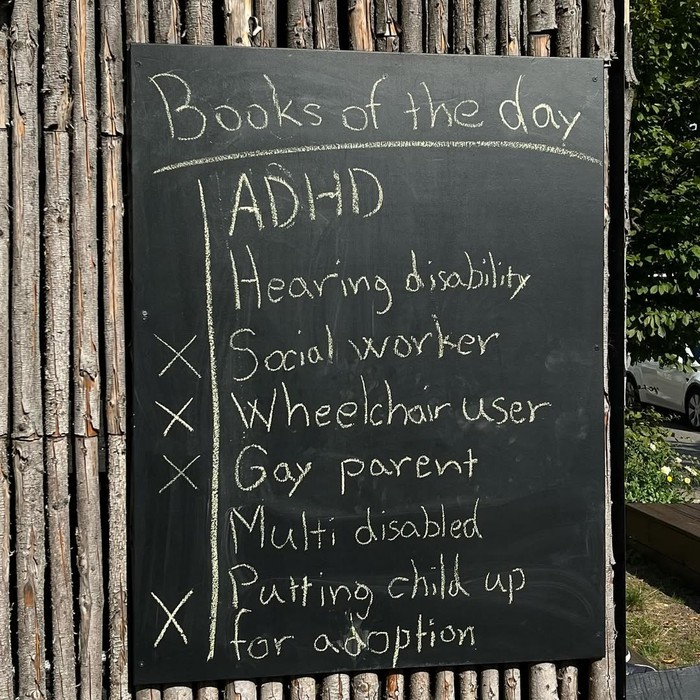 Books of the day
ADHD
Hearing disability
X Social worker
X Wheelchair user
X Gay parent
Multi disabled
Putting child up
X for adoption